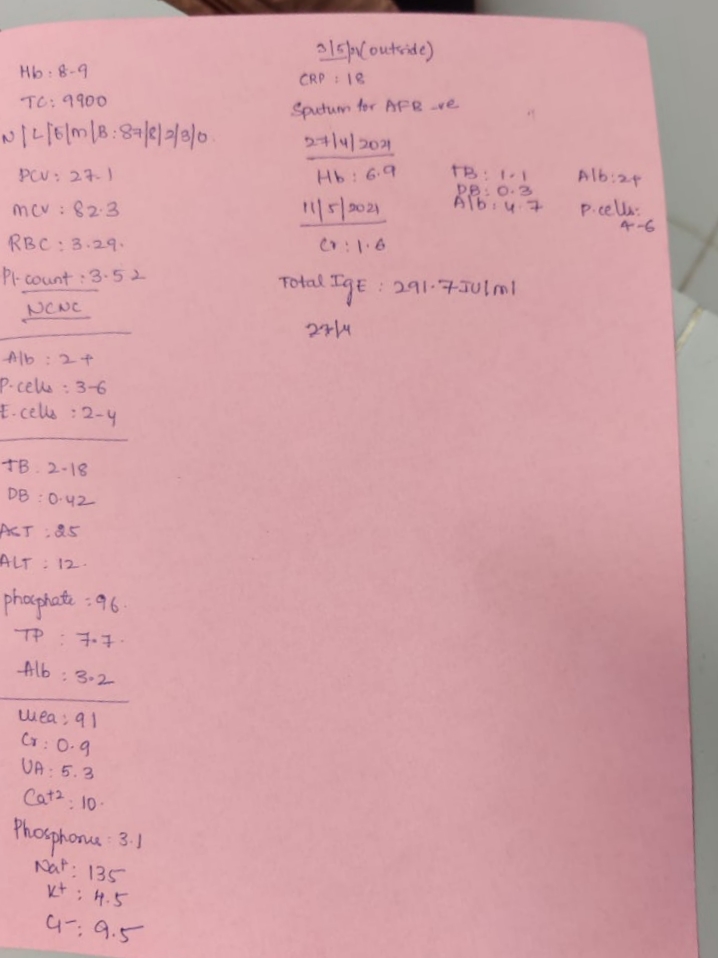 Hb: 8-9
TC: 9900
N/L/E/M/B: 87/8/2/3/0.
PCV: 27.1
MCV: 82.3
RBC: 3.29.
Pl. count: 3.52
NCNC
Alb: 2+
P.cells: 3-6
E.cells: 2-4
TB. 2-18
DB: 0.42
AST: 25
ALT: 12.
phosphate: 96.
TP: 7.7.
Alb: 3.2
urea: 91
Cr: 0.9
UA: 5.3
Ca+2: 10.
Phosphorus: 3.1
Na+: 135
K+: 4.5
Cl-: 9.5
(outside)
CRP: 18
Sputum for AFB -ve
27/4/2021
Hb: 6.9
11/5/2021
Cr: 1.6
Total IgE: 291.7 IU/ml
27/4
TB: 1.1
DB: 0.3
Alb: 4.7
Alb: 2+
P.cells:
4-6